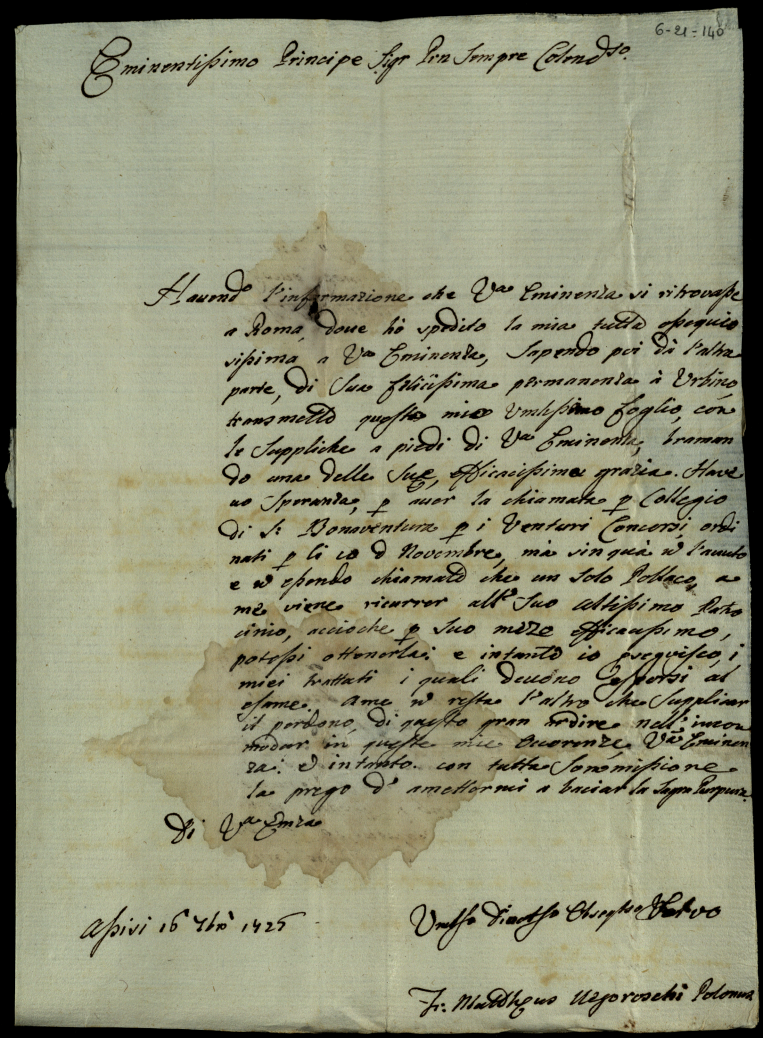 6-21-140
Eminentissimo Principe Sigr Prn Sempre Colendso.
Havendo l'informazione che Va Eminenza si ritrovasse
a Roma, dove hò spedito la mia tutta ossequio
sissima a Va Eminenza, Sapendo poi dà l'altra
parte, di Sua felicissima permanenza à Urbino,
transmetto questo mio Umlissimo foglio, con
le Suppliche a piedi di Va Eminenza, braman
do una delle Sue, efficacissime grazie. Have
vo Speranza, p aver la chiamata p Collegio
di S: Bonaventura p i Venturi Concorsi, ordi
nati p li 10 d Novembre, mà sin quà n l'avuto
e n essendo chiamato che un solo Pollaco, a
me viene ricorrer all' Suo altissimo Patro
cinio, acciochè p Suo mezo efficacissimo,
potessi ottenerla: e intanto io proseguisco, i
miei trattati i quali devono esporsi al
esame. Ame n resta l'altro che Supplicar
il perdono, di questo gran ardire nell' incom
modar in queste mie occorenze Va Eminen
za: e intanto con tutta Sommissione
la prego d' amettermi a baciar la Sagra Purpura.
Di Va Emza
Assisi 16 7bre 1725
Umsso Divotsso Obseqsso Servo
Fr: Mattheus Polonus